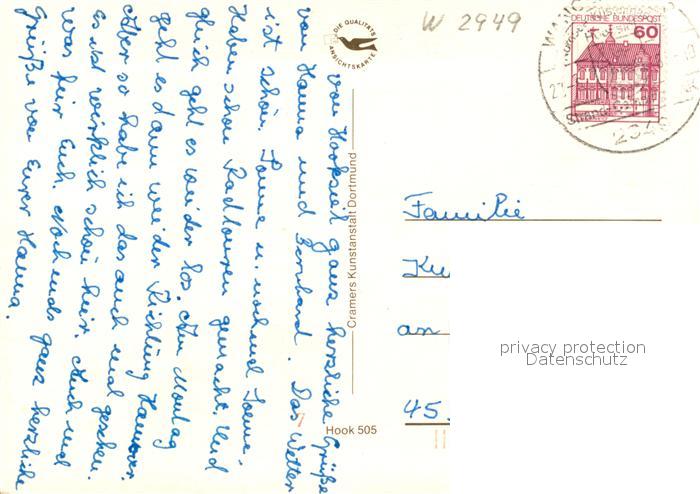 von Hooksiel ganz herzliche Grüße
von Hanna und Bernhard. Das Wetter
ist schön. Sonne u. nochmal Sonne.
Haben schon Radtouren gemacht. Und
gleich geht es wieder los. Am Montag
geht es dann wieder Richtung Hannover.
Aber so habe ich das auch mal gesehen.
Es ist wirklich schön hier. Auch mal
was für Euch. Nochmals ganz herzliche
Grüße von Eurer Hanna.
DIE QUALITÄTS
ANSICHTSKARTE
Cramers Kunstanstalt Dortmund
Hook 505
W 2949
DEUTSCHE BUNDESPOST
60
WANG
Strand
294
Familie
Ku
an
45.
privacy protection
Datenschutz